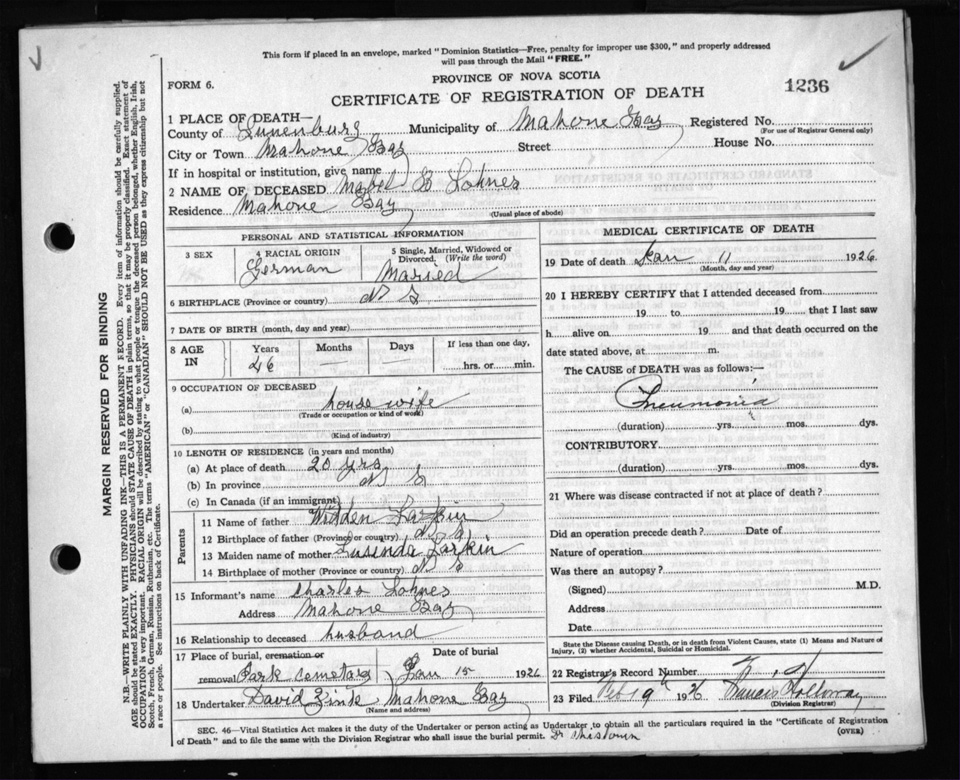 This form if placed in an envelope, marked "Dominion Statistics—Free, penalty for improper use $300," and properly addressed
will pass through the Mail "FREE."
PROVINCE OF NOVA SCOTIA
FORM 6.
1236
CERTIFICATE OF REGISTRATION OF DEATH
1 PLACE OF DEATH—
County of Lunenburg Municipality of Mahone Bay Registered No.
(For use of Registrar General only)
City or Town Mahone Bay Street House No.
If in hospital or institution, give name
2 NAME OF DECEASED Mabel Lohnes
Residence Mahone Bay
(Usual place of abode)
PERSONAL AND STATISTICAL INFORMATION
3 SEX 4 RACIAL ORIGIN German 5 Single, Married, Widowed or Divorced. (Write the word) Maried
6 BIRTHPLACE (Province or country) N S
7 DATE OF BIRTH (month, day and year)
8 AGE IN Years 46 Months — Days — If less than one day, hrs. or min.
9 OCCUPATION OF DECEASED
(a) house wife
(Trade or occupation or kind of work)
(b)
(Kind of industry)
10 LENGTH OF RESIDENCE (in years and months)
(a) At place of death 20 yrs
(b) In province N S
(c) In Canada (if an immigrant)
Parents
11 Name of father Larkin
12 Birthplace of father (Province or country) N S
13 Maiden name of mother Lusinda Larkin
14 Birthplace of mother (Province or country) N S
15 Informant's name Charles Lohnes
Address Mahone Bay
16 Relationship to deceased husband
17 Place of burial, cremation or removal Park cemetary Date of burial Jan 15 1926
18 Undertaker David Zink Mahone Bay
(Name and address)
MEDICAL CERTIFICATE OF DEATH
19 Date of death Jan 11 1926.
(Month, day and year)
20 I HEREBY CERTIFY that I attended deceased from
19 to 19 that I last saw
h alive on 19 and that death occurred on the
date stated above, at m.
The CAUSE of DEATH was as follows:—
Pneumonia
(duration) yrs. mos. dys.
CONTRIBUTORY
(duration) yrs. mos. dys.
21 Where was disease contracted if not at place of death?
Did an operation precede death? Date of
Nature of operation
Was there an autopsy?
(Signed) M.D.
Address
Date
State the Disease causing Death, or in death from Violent Causes, state (1) Means and Nature of
Injury, (2) whether Accidental, Suicidal or Homicidal.
22 Registrar's Record Number
23 Filed Feb 9 1926 Francis Holloway
(Division Registrar)
SEC. 46—Vital Statistics Act makes it the duty of the Undertaker or person acting as Undertaker to obtain all the particulars required in the "Certificate of Registration
of Death" and to file the same with the Division Registrar who shall issue the burial permit.
(OVER)
MARGIN RESERVED FOR BINDING
N.B.—WRITE PLAINLY WITH UNFADING INK—THIS IS A PERMANENT RECORD. Every item of information should be carefully supplied.
AGE should be stated EXACTLY. PHYSICIANS should STATE CAUSE OF DEATH in plain terms, so that it may be properly classified. Exact statement of
OCCUPATION is very important. RACIAL ORIGIN will be described by stating to what people or tongue the deceased person belonged, whether English, Irish,
Scotch, French, German, Russian, Ruthenian, etc. The terms "AMERICAN" or "CANADIAN" SHOULD NOT BE USED as they express citizenship but not
a race or people. See instructions on back of Certificate.